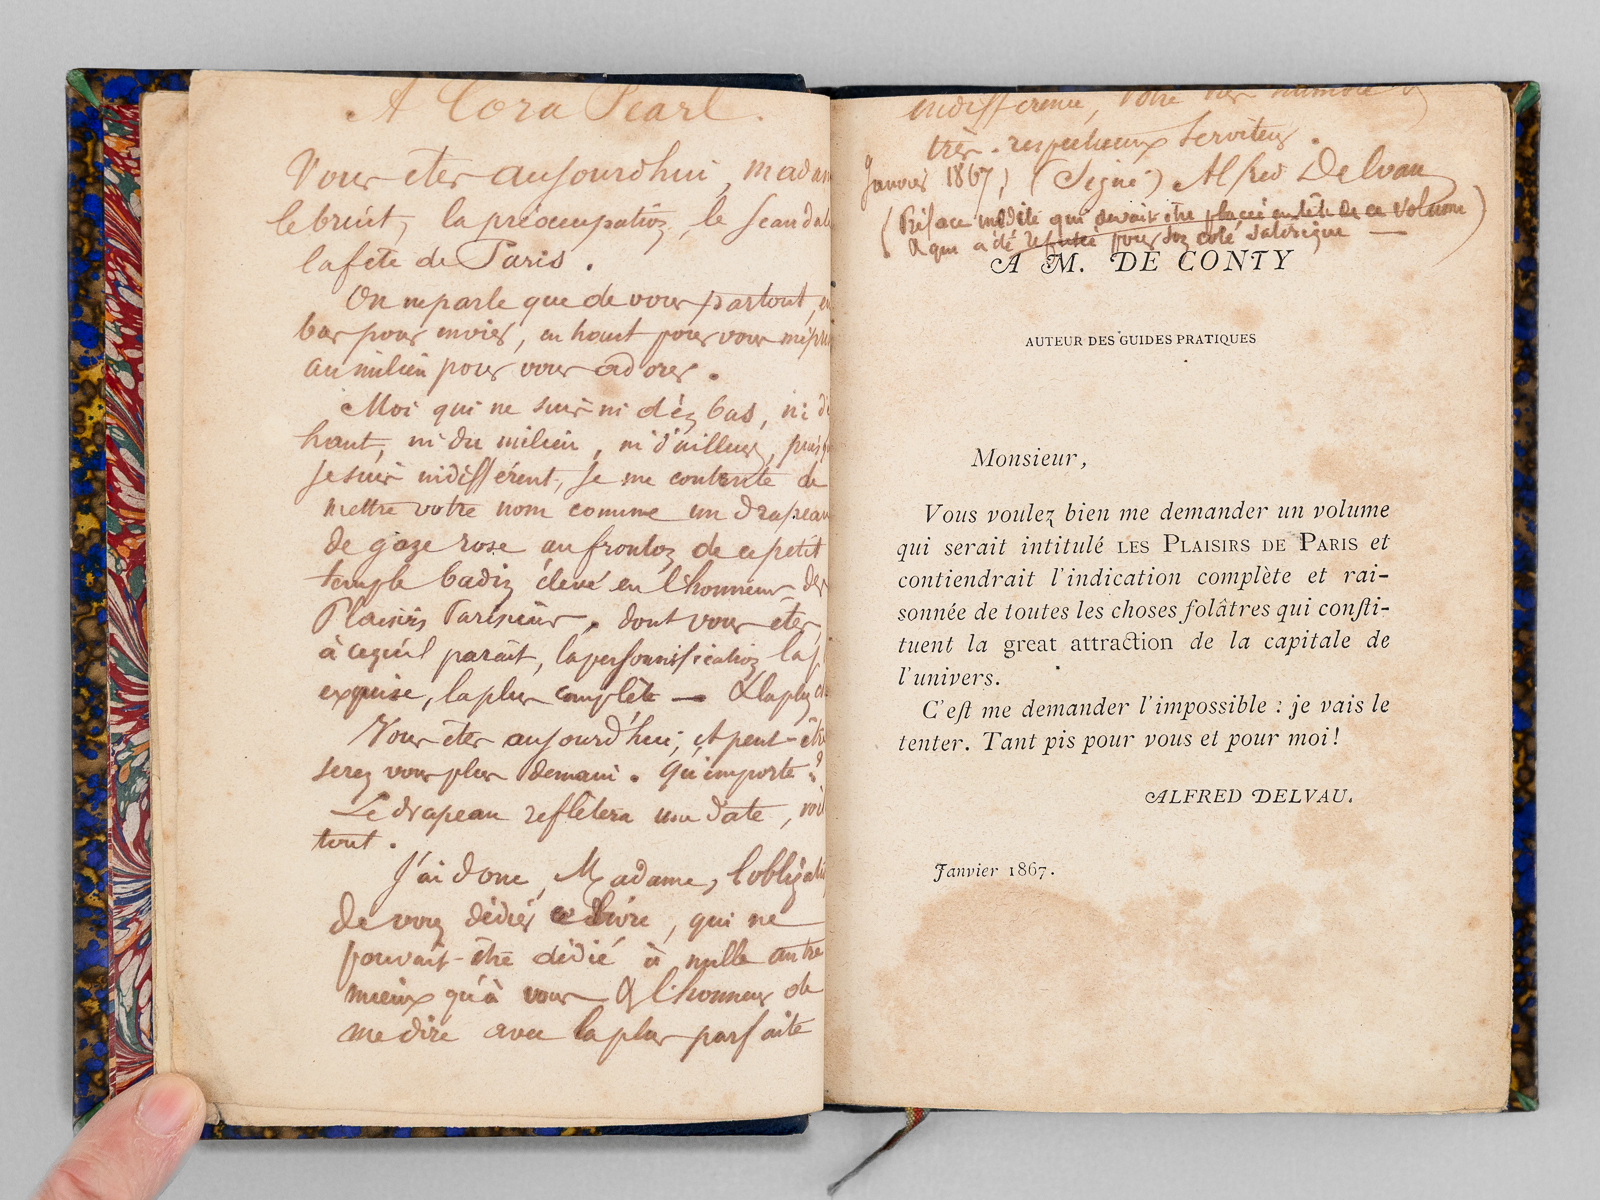 A Cora Pearl.
Vous êtes aujourd'hui, madam
le bruit, la préoccupation, le scandal
la fête de Paris.
On ne parle que de vous partout, en
bas pour envier, en haut pour vous mépri
au milieu pour vous adorer.
Moi qui ne suis ni d'en bas, ni d'e
haut, ni du milieu, ni d'ailleurs, puisq
je suis indifférent, je me contente de
mettre votre nom comme un drapeau
de gaze rose au fronton de ce petit
temple badin élevé en l'honneur des
Plaisirs Parisiens, dont vous êtes,
à ce qu'il parait, la personnification la p
exquise, la plus complète — & la plus
Vous êtes aujourd'hui, et peut-être
serez vous plus demain. Qu'importe
Le drapeau reflètera une date, voil
tout.
J'ai donc, Madame, l'obligati
de vous dédier ce livre, qui ne
pouvait-être dédié à nulle autre
mieux qu'à vous & l'honneur de
me dire avec la plus parfaite
indifférence, votre très humble &
très-respectueux serviteur.
Janvier 1867, (Signé) Alfred Delvau
(Préface inédite qui devait être placée en tête de ce volume
& qui a été refusée pour son coté satirique —)
A M. DE CONTY
AUTEUR DES GUIDES PRATIQUES
Monsieur,
Vous voulez bien me demander un volume
qui serait intitulé LES PLAISIRS DE PARIS et
contiendrait l'indication complète et rai-
sonnée de toutes les choses folâtres qui consti-
tuent la great attraction de la capitale de
l'univers.
C'est me demander l'impossible : je vais le
tenter. Tant pis pour vous et pour moi!
ALFRED DELVAU.
Janvier 1867.